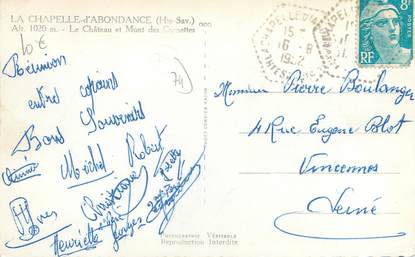 LA CHAPELLE-d'ABONDANCE (Hte-Sav.)
Alt. 1020 m. - Le Château et Mont des Cornettes
10 €
74
Réunion
entre copains
Bons Souvenirs
Aimée Michel Robert
Yves
Henriette Georges
PHOTOGRAPHIE VÉRITABLE
Reproduction Interdite
LA CHAPELLE D'AB
15 -
16 - 8
1952
8F
POSTES
RF
Monsieur Pierre Boulanger
4 Rue Eugène Blot
Vincennes
Seine